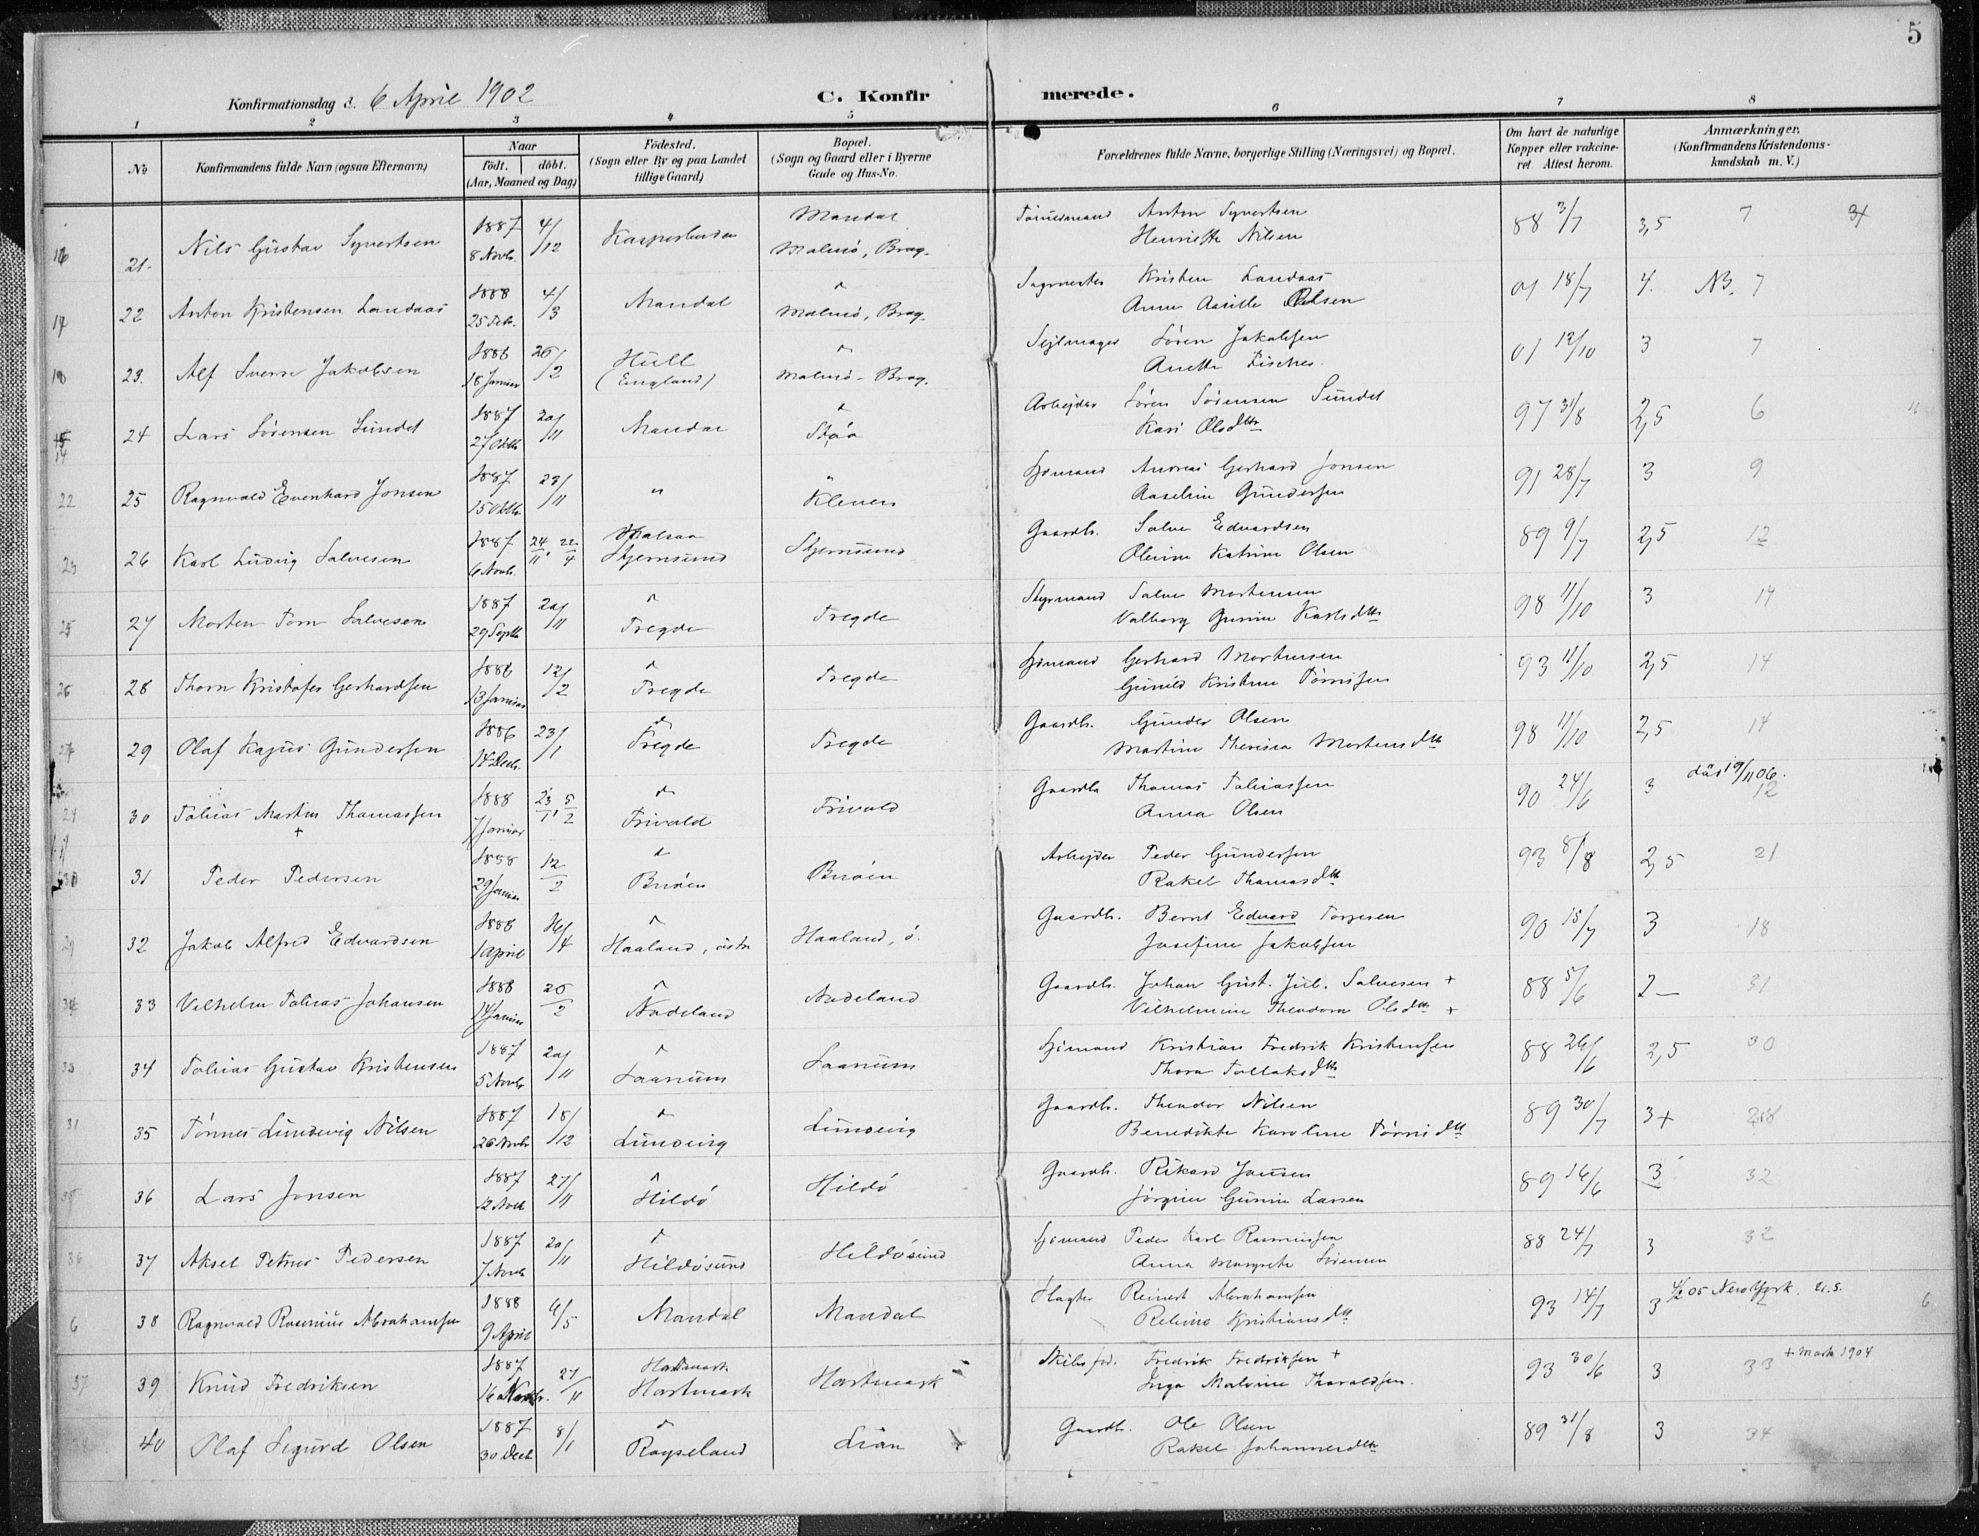 5
Konfirmationsdag d. 6 April 1902 C. Konfir merede.
1 2 3 4 5 6 7 8
No Konfirmandens fulde Navn (ogsaa Efternavn) Naar Födested. Bopæl. Forældrenes fulde Navne, borgerlige Stilling (Næringsvei) og Bopæl. Om havt de naturlige Anmærkninger.
födt. döbt. (Sogn eller By og paa Landet (Sogn og Gaard eller i Byerne Kopper eller vakcine- (Konfirmandens Kristendoms-
(Aar, Maaned og Dag) tillige Gaard) Gade og Hus-No. ret Attest herom. kundskab m. V.)
1887 4/12 Mandal Tømmermand Anton Syvertsen 88 3/7 3,5 7
16 21. Nils Gustav Syvertsen 8 Novb. Malmö, Brog. Henriette Nilsen
1888 4/3 Mandal " Kristen Landaas 01 18/7 4. NB. 7
17 22 Anton Kristensen Landaas 25 Feb. Malmö, Brog. Anne Olsen
1886 26/2 Hull " Sejlmager Sören Jakobsen 01 12/10 3 7
18 23. Alf Sverre Jakobsen 18 Januar (England) Malmö - Brog. Anette Fischer.
1887 20/11 Mandal " Arbejder Sören Sörensen Sundet 97 31/8 2,5 6
24 Lars Sörensen Sundet 27 Oktb. Kari Olsdtr
14
1887 23/11 " " Sömand Andreas Gerhard Jonsen 91 28/7 3 9
22 25 Ragnvald Evenhard Jonsen 15 Oktb. Kleven Aaseline Gundersen
1887 24/11 22/4 Halsaa Gaardb. Salve Edvardsen 89 9/7 2,5 12
23 26 Karl Ludvig Salvesen 6 Novb. Stjernsund Stjernsund Olevine Katrine Olsen
1887 20/11 " Tregde Styrmand Salve Mortensen 98 11/10 3 14
25 27 Morten Torn Salvesen 29 Septb. Tregde Valborg Gunine Karlsdtr
1886 12/2 " Tregde Sömand Gerhard Mortensen 93 11/10 2,5 14
26 28 Thorn Kristofer Gerhardsen 13 Januar Tregde Gunild Kristine Törrisen
1886 23/1 " Tregde Gaardb. Gunder Olsen 98 11/10 2,5 14
27 29 Olaf Kajus Gundersen 14 Decb. Tregde Martine Theresia Mortensdtr
1888 23/1 5/2 " Frivold Gaardb. Thomas Tobiassen 90 24/6 3 död 19/11 06. 12
24 30 Tobias Martin Thomassen + 7 Januar Frivold Anna Olsen
1888 12/2 " Buöen Arbejder Peder Gundersen 93 8/8 2,5 21
30 31 Peder Pedersen 29 Januar Buöen Rakel Thomasdtr
1888 16/4 " Haaland, ö. Gaardb. Bernt Edvard Torjesen 90 15/7 3 18
29 32 Jakob Alfred Edvardsen 1 April Haaland, östre Josefine Jakobsen
1888 26/2 " Aadeland Gaardb. Johan Gust. Jul. Salvesen + 88 5/6 2 – 31
34 33 Vilhelm Tobias Johansen 14 Januar Aadeland Vilhelmine Theodora Olsdtr +
1887 20/11 " Saanum Sömand Kristian Fredrik Kristensen 88 26/6 2,5 30
33 34 Tobias Gustav Kristensen 5 Novb. Saanum Thora Tollaksdtr
1887 18/12 " Lundevig Gaardb. Theodor Nilsen 89 30/7 3+ 28
31 35 Tönnes Lundevig Nilsen 26 Novb. Lundevig Benedikte Karoline Törrisdtr
1887 27/11 " Hildö Gaardb. Rikard Jansen 89 16/6 3 32
35 36 Lars Jonsen 12 Novb. Hildö Jörgine Gunine Larsen
1887 20/11 " Hildösund Sömand Peder Karl Rasmussen 88 24/7 3 32
36 37 Aksel Petrus Pedersen 7 Novb. Hildösund Anna Margrete Sörensen
1888 6/5 Mandal Mandal Slagter Reinert Abrahamsen 93 14/7 3 05 New York. U.S. 6
6 38 Ragnvald Rasmus Abrahamsen 9 April Kristiansdtr
1887 27/11 Hartmark Skibsför. Fredrik Fredriksen + 93 30/6 3 33 + Marts 1904
37 39 Knud Fredriksen 16 Novbr. Hartmark Hartmark Inga Malvine Thoraldsen.
1887 8/1 " Gaardb. Ole Olsen 89 31/8 3 34
40 Olaf Sigurd Olsen 30 Decb. Röyseland Lian Rakel Johannesdtr